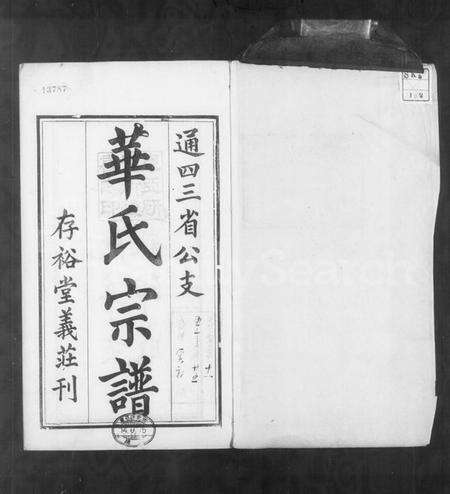 13787
通四三省公支
華氏宗譜
存裕堂義莊刊